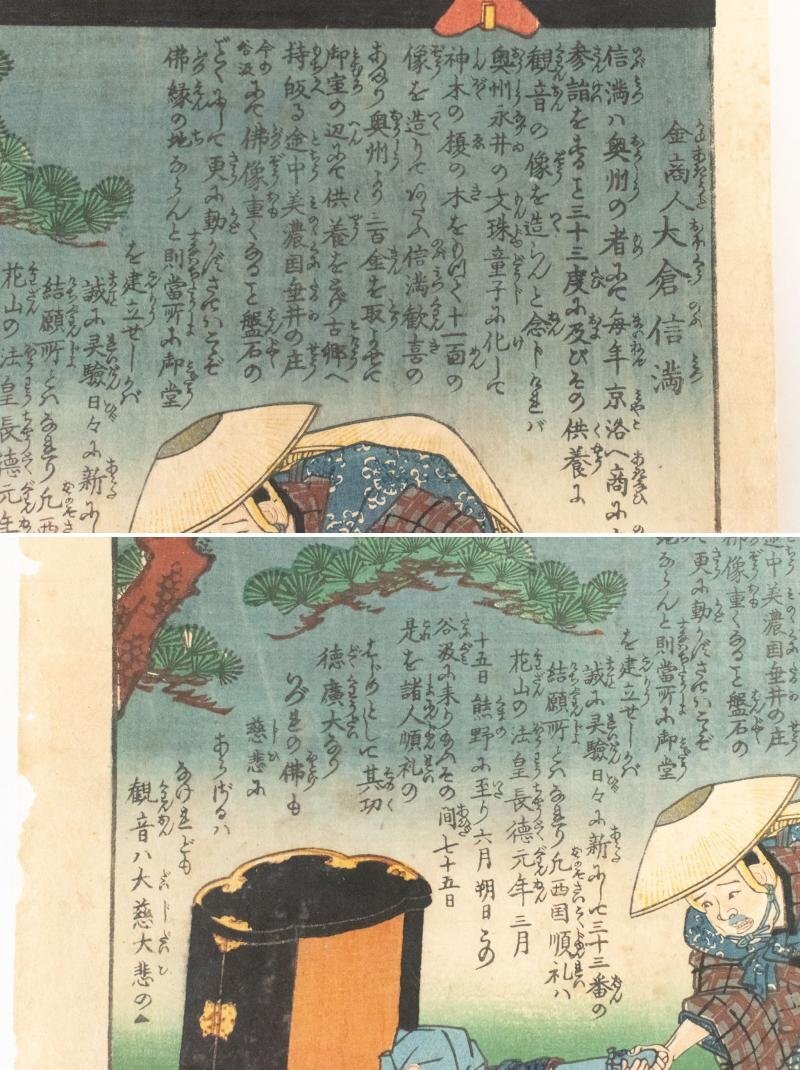 金商人大倉信満
信満ハ奥州の者にて毎年京洛へ商に
参詣をすること三十三度に及びその供養に
観音の像を造らんと念じければ
奥州永井の文珠童子に化して
神木の榎の木をもつて十一面の
像を造りて
信満歓喜の
あまり奥州より三百金を取よせて
御室の辺にて供養をとげ古郷へ
持皈る途中美濃国垂井の庄
今の谷汲にて佛像重くなること盤石の
ごとくにして更に動かずさてはこそ
佛縁の地ならんと則當所に御堂
を建立せしかバ
誠に灵驗日々に新にして三十三番の
結願所とハなれり凡西国順礼ハ
花山の法皇長徳元年三月
十五日熊野に至り六月朔日この
谷汲に来り
その間七十五日
是を諸人順礼の
はじめとして其功
徳廣大なり
いづれの佛も
慈悲に
あらざるハ
なけれども
観音ハ大慈大悲の▲